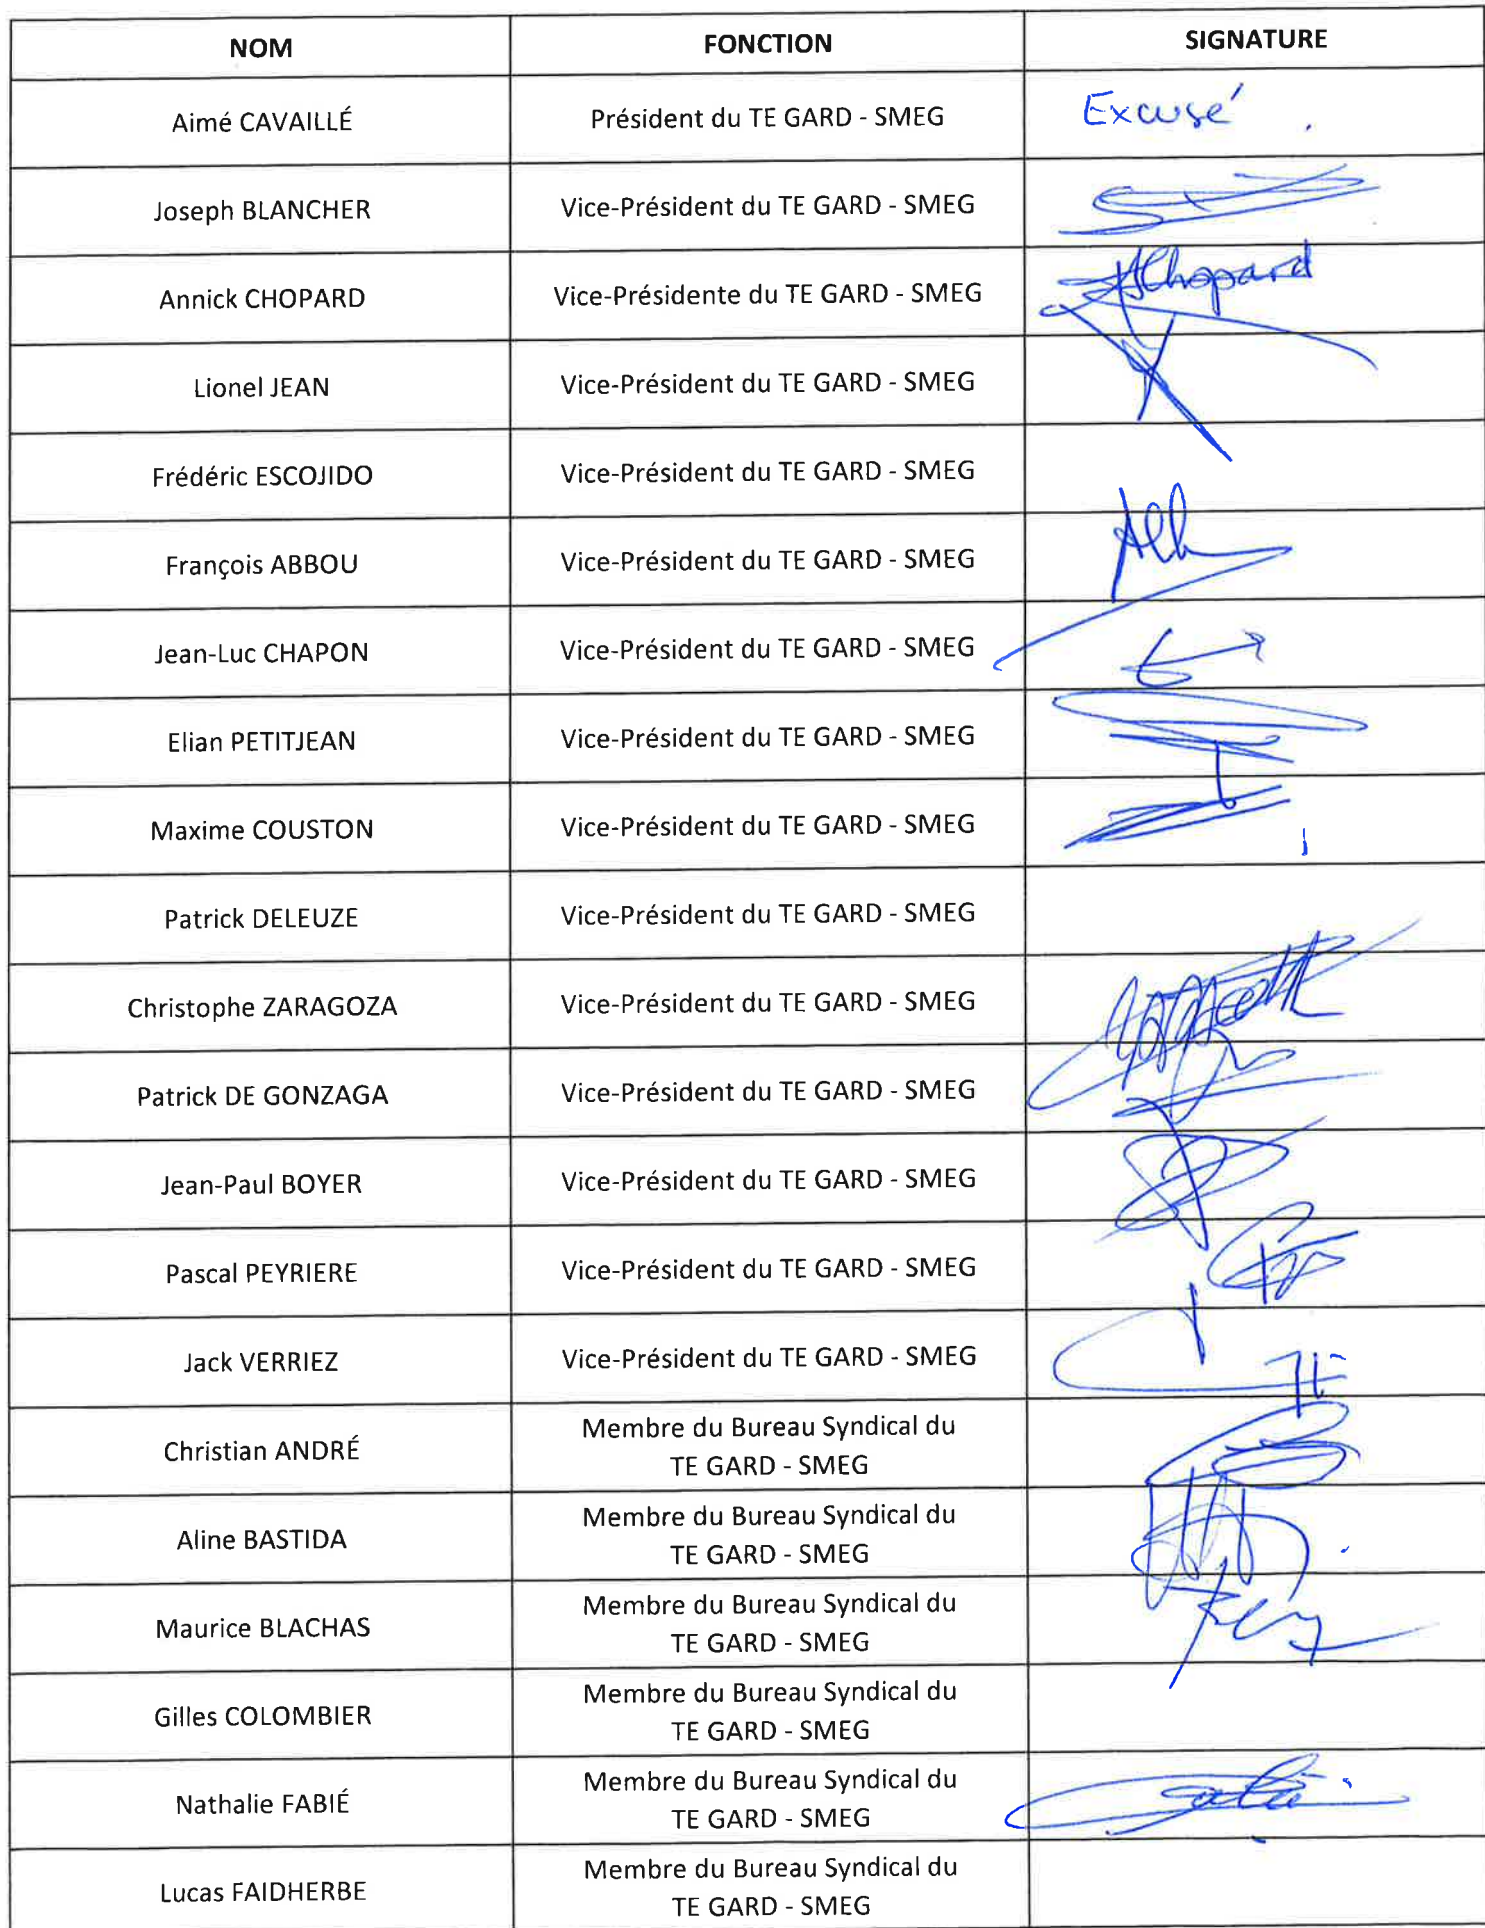 NOM FONCTION SIGNATURE
Aimé CAVAILLÉ Président du TE GARD - SMEG Excusé .
Joseph BLANCHER Vice-Président du TE GARD - SMEG
Annick CHOPARD Vice-Présidente du TE GARD - SMEG AChopard
Lionel JEAN Vice-Président du TE GARD - SMEG
Frédéric ESCOJIDO Vice-Président du TE GARD - SMEG
François ABBOU Vice-Président du TE GARD - SMEG
Jean-Luc CHAPON Vice-Président du TE GARD - SMEG
Elian PETITJEAN Vice-Président du TE GARD - SMEG
Maxime COUSTON Vice-Président du TE GARD - SMEG
Patrick DELEUZE Vice-Président du TE GARD - SMEG
Christophe ZARAGOZA Vice-Président du TE GARD - SMEG
Patrick DE GONZAGA Vice-Président du TE GARD - SMEG
Jean-Paul BOYER Vice-Président du TE GARD - SMEG
Pascal PEYRIERE Vice-Président du TE GARD - SMEG
Jack VERRIEZ Vice-Président du TE GARD - SMEG
Christian ANDRÉ Membre du Bureau Syndical du
TE GARD - SMEG
Aline BASTIDA Membre du Bureau Syndical du
TE GARD - SMEG
Maurice BLACHAS Membre du Bureau Syndical du
TE GARD - SMEG
Gilles COLOMBIER Membre du Bureau Syndical du
TE GARD - SMEG
Nathalie FABIÉ Membre du Bureau Syndical du
TE GARD - SMEG
Lucas FAIDHERBE Membre du Bureau Syndical du
TE GARD - SMEG